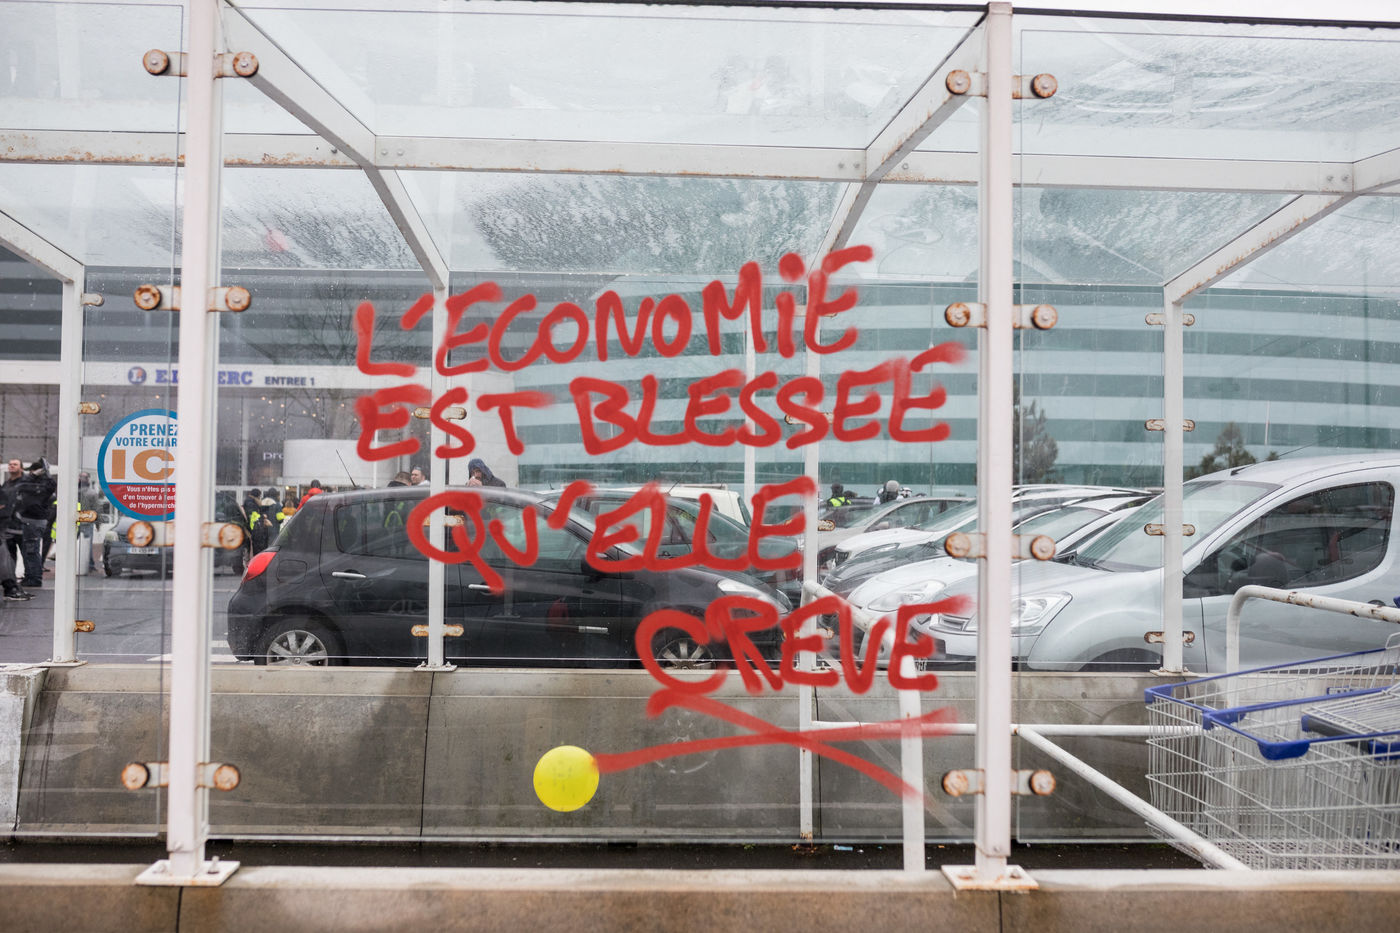 L'ECONOMIE
EST BLESSEE
QU'ELLE
CREVE
ENTREE 1
PRENEZ
VOTRE CHAR
IC
Vous n'êtes pas
d'en trouver à l'ent
de l'hypermarch